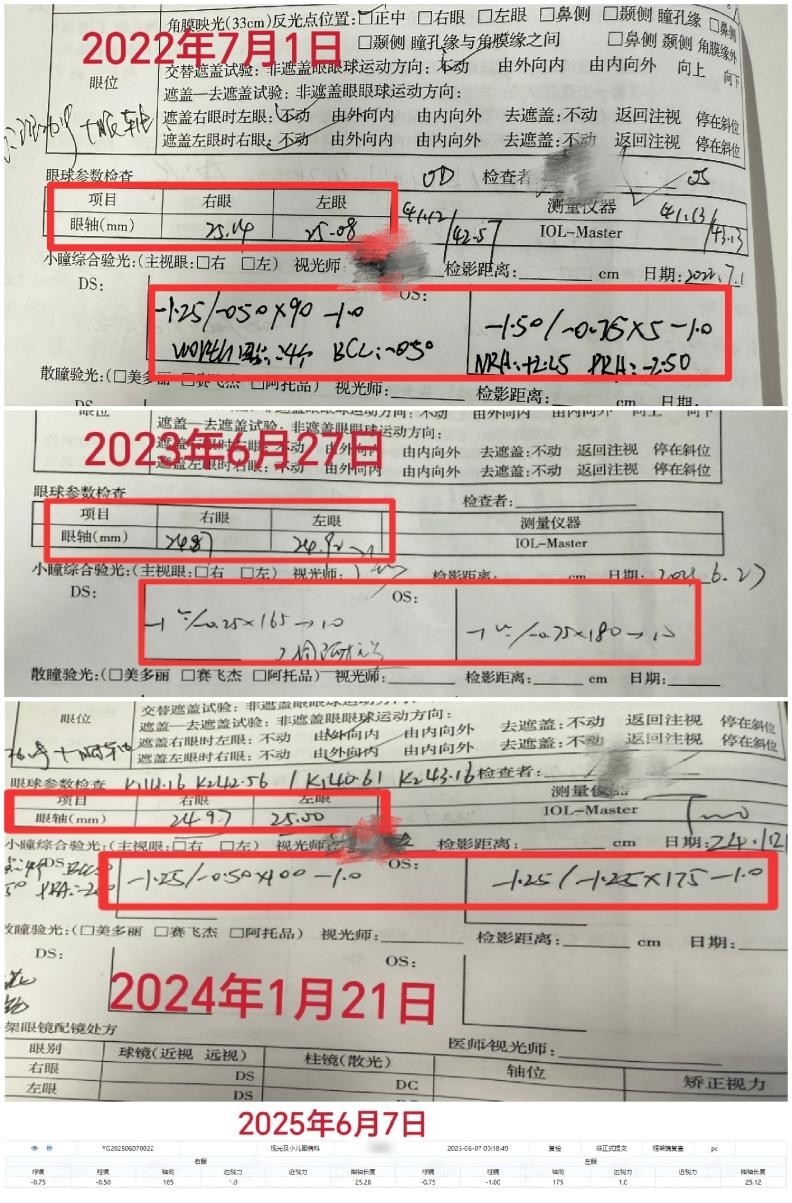 2022年7月1日
角膜映光(33cm)反光点位置:□正中 □右眼 □左眼 □鼻侧 □颞侧 瞳孔缘 □鼻侧
□颞侧 瞳孔缘与角膜缘之间 □鼻侧 颞侧 角膜缘外
眼位
交替遮盖试验:非遮盖眼眼球运动方向:不动 由外向内 由内向外 向上 向下
遮盖—去遮盖试验:非遮盖眼眼球运动方向:
遮盖右眼时左眼:不动 由外向内 由内向外 去遮盖:不动 返回注视 停在斜位
遮盖左眼时右眼:不动 由外向内 由内向外 去遮盖:不动 返回注视 停在斜位
眼球参数检查 OD 检查者 OS
项目 右眼 左眼 测量仪器
眼轴(mm) 25.14 25.08 41.12/42.57 IOL-Master 41.13/43.13
小瞳综合验光:(主视眼:□右 □左) 视光师 检影距离: cm 日期:2022.7.1
DS: OS:
-1.25/-0.50×90-1.0 -1.50/-0.75×5-1.0
BCC:-0.50 NRA:+2.25 PRA:-2.50
散瞳验光:(□美多丽 □赛飞杰 □阿托品) 视光师: 检影距离: cm 日期:
2023年6月27日
眼位
遮盖—去遮盖试验:非遮盖眼眼球运动方向:
遮盖右眼时左眼:不动 由外向内 由内向外 去遮盖:不动 返回注视 停在斜位
遮盖左眼时右眼:不动 由外向内 由内向外 去遮盖:不动 返回注视 停在斜位
眼球参数检查 检查者:
项目 右眼 左眼 测量仪器
眼轴(mm) 24.87 24.92 IOL-Master
小瞳综合验光:(主视眼:□右 □左) 视光师: 检影距离: cm 日期: 6.27
DS: OS:
/-0.25×165→1.0 /-0.75×180→1.0
散瞳验光:(□美多丽 □赛飞杰 □阿托品) 视光师: 检影距离: cm 日期:
眼位
交替遮盖试验:非遮盖眼眼球运动方向:不动 由外向内 由内向外 向上
遮盖—去遮盖试验:非遮盖眼眼球运动方向:
遮盖右眼时左眼:不动 由外向内 由内向外 去遮盖:不动 返回注视 停在斜位
遮盖左眼时右眼:不动 由外向内 由内向外 去遮盖:不动 返回注视 停在斜位
眼球参数检查 K141.16 K242.56 / K140.61 K243.16 检查者:
项目 右眼 左眼 测量仪器
眼轴(mm) 24.97 25.00 IOL-Master
小瞳综合验光:(主视眼:□右 □左) 视光师 检影距离: cm 日期:24.1.21
DS: OS:
-1.25/-0.50×100-1.0 -1.25/-1.25×175-1.0
散瞳验光:(□美多丽 □赛飞杰 □阿托品) 视光师: 检影距离: cm 日期:
DS: OS:
2024年1月21日
架眼镜配镜处方 医师/视光师:
眼别 球镜(近视 远视) 柱镜(散光) 轴位 矫正视力
右眼 DS DC
左眼 DS
2025年6月7日
YG202506070022 视光及小儿眼病科 2025-06-07 09:18:49 复检 非正式提交 框架镜复查 pc
右眼 左眼
球镜 柱镜 轴向 远视力 近视力 眼轴长度 球镜 柱镜 轴向 远视力 近视力 眼轴长度
-0.75 -0.50 165 1.0 25.28 -0.75 -1.00 175 1.0 25.12